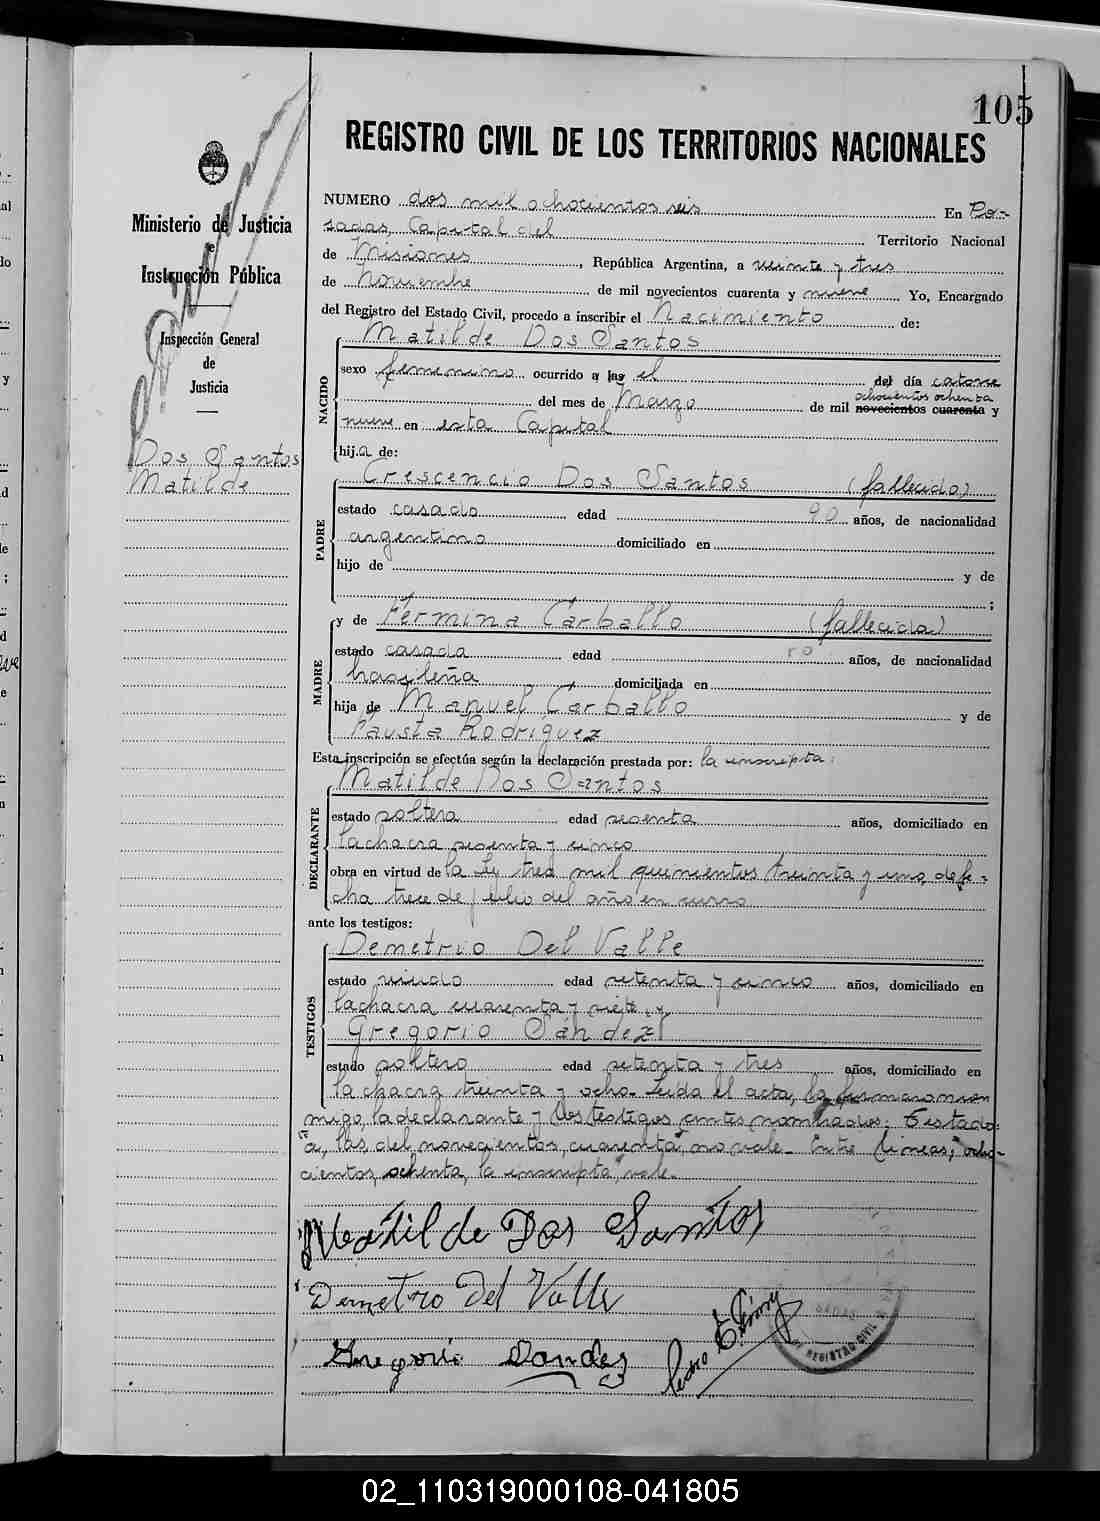 105
REGISTRO CIVIL DE LOS TERRITORIOS NACIONALES
Ministerio de Justicia
e
Instrucción Pública
Inspección General
de
Justicia
Dos Santos
Matilde
NUMERO dos mil ochocientos seis En Po-
sadas, Capital del Territorio Nacional
de Misiones, República Argentina, a veinte y tres
de Noviembre de mil novecientos cuarenta y nueve Yo, Encargado
del Registro del Estado Civil, procedo a inscribir el Nacimiento de:
Matilde Dos Santos
NACIDO
sexo femenino ocurrido a las el del día catorce
ochocientos ochenta
del mes de Marzo de mil novecientos cuarenta y
nueve en esta Capital
hija de:
Crescencio Dos Santos (fallecido)
PADRE
estado casado edad 90 años, de nacionalidad
argentino domiciliado en
hijo de y de
;
y de Fermina Carballo (fallecida)
MADRE
estado casada edad años, de nacionalidad
brasileña domiciliada en
hija de Manuel Carballo y de
Fausta Rodríguez
Esta inscripción se efectúa según la declaración prestada por: la inscripta:
Matilde Dos Santos
DECLARANTE
estado soltera edad sesenta años, domiciliado en
la chacra sesenta y cinco
obra en virtud de la Ley tres mil quinientos treinta y uno, de fe-
cha trece de julio del año en curso
ante los testigos:
Demetrio Del Valle
TESTIGOS
estado viudo edad setenta y cinco años, domiciliado en
la chacra cuarenta y siete y
Gregorio Sández
estado soltero edad setenta y tres años, domiciliado en
la chacra treinta y ocho. Leida el acta, la firmaron con
migo, la declarante y los testigos antes nombrados: Testado:
"a, las, del, novecientos, cuarenta", no vale. Entre lineas; "ocho-
cientos, ochenta, la inscripta" vale.
Matilde Dos Santos
Demetrio Del Valle
Gregorio Sandez
Pedro
REGISTRO CIVIL
02_110319000108-041805